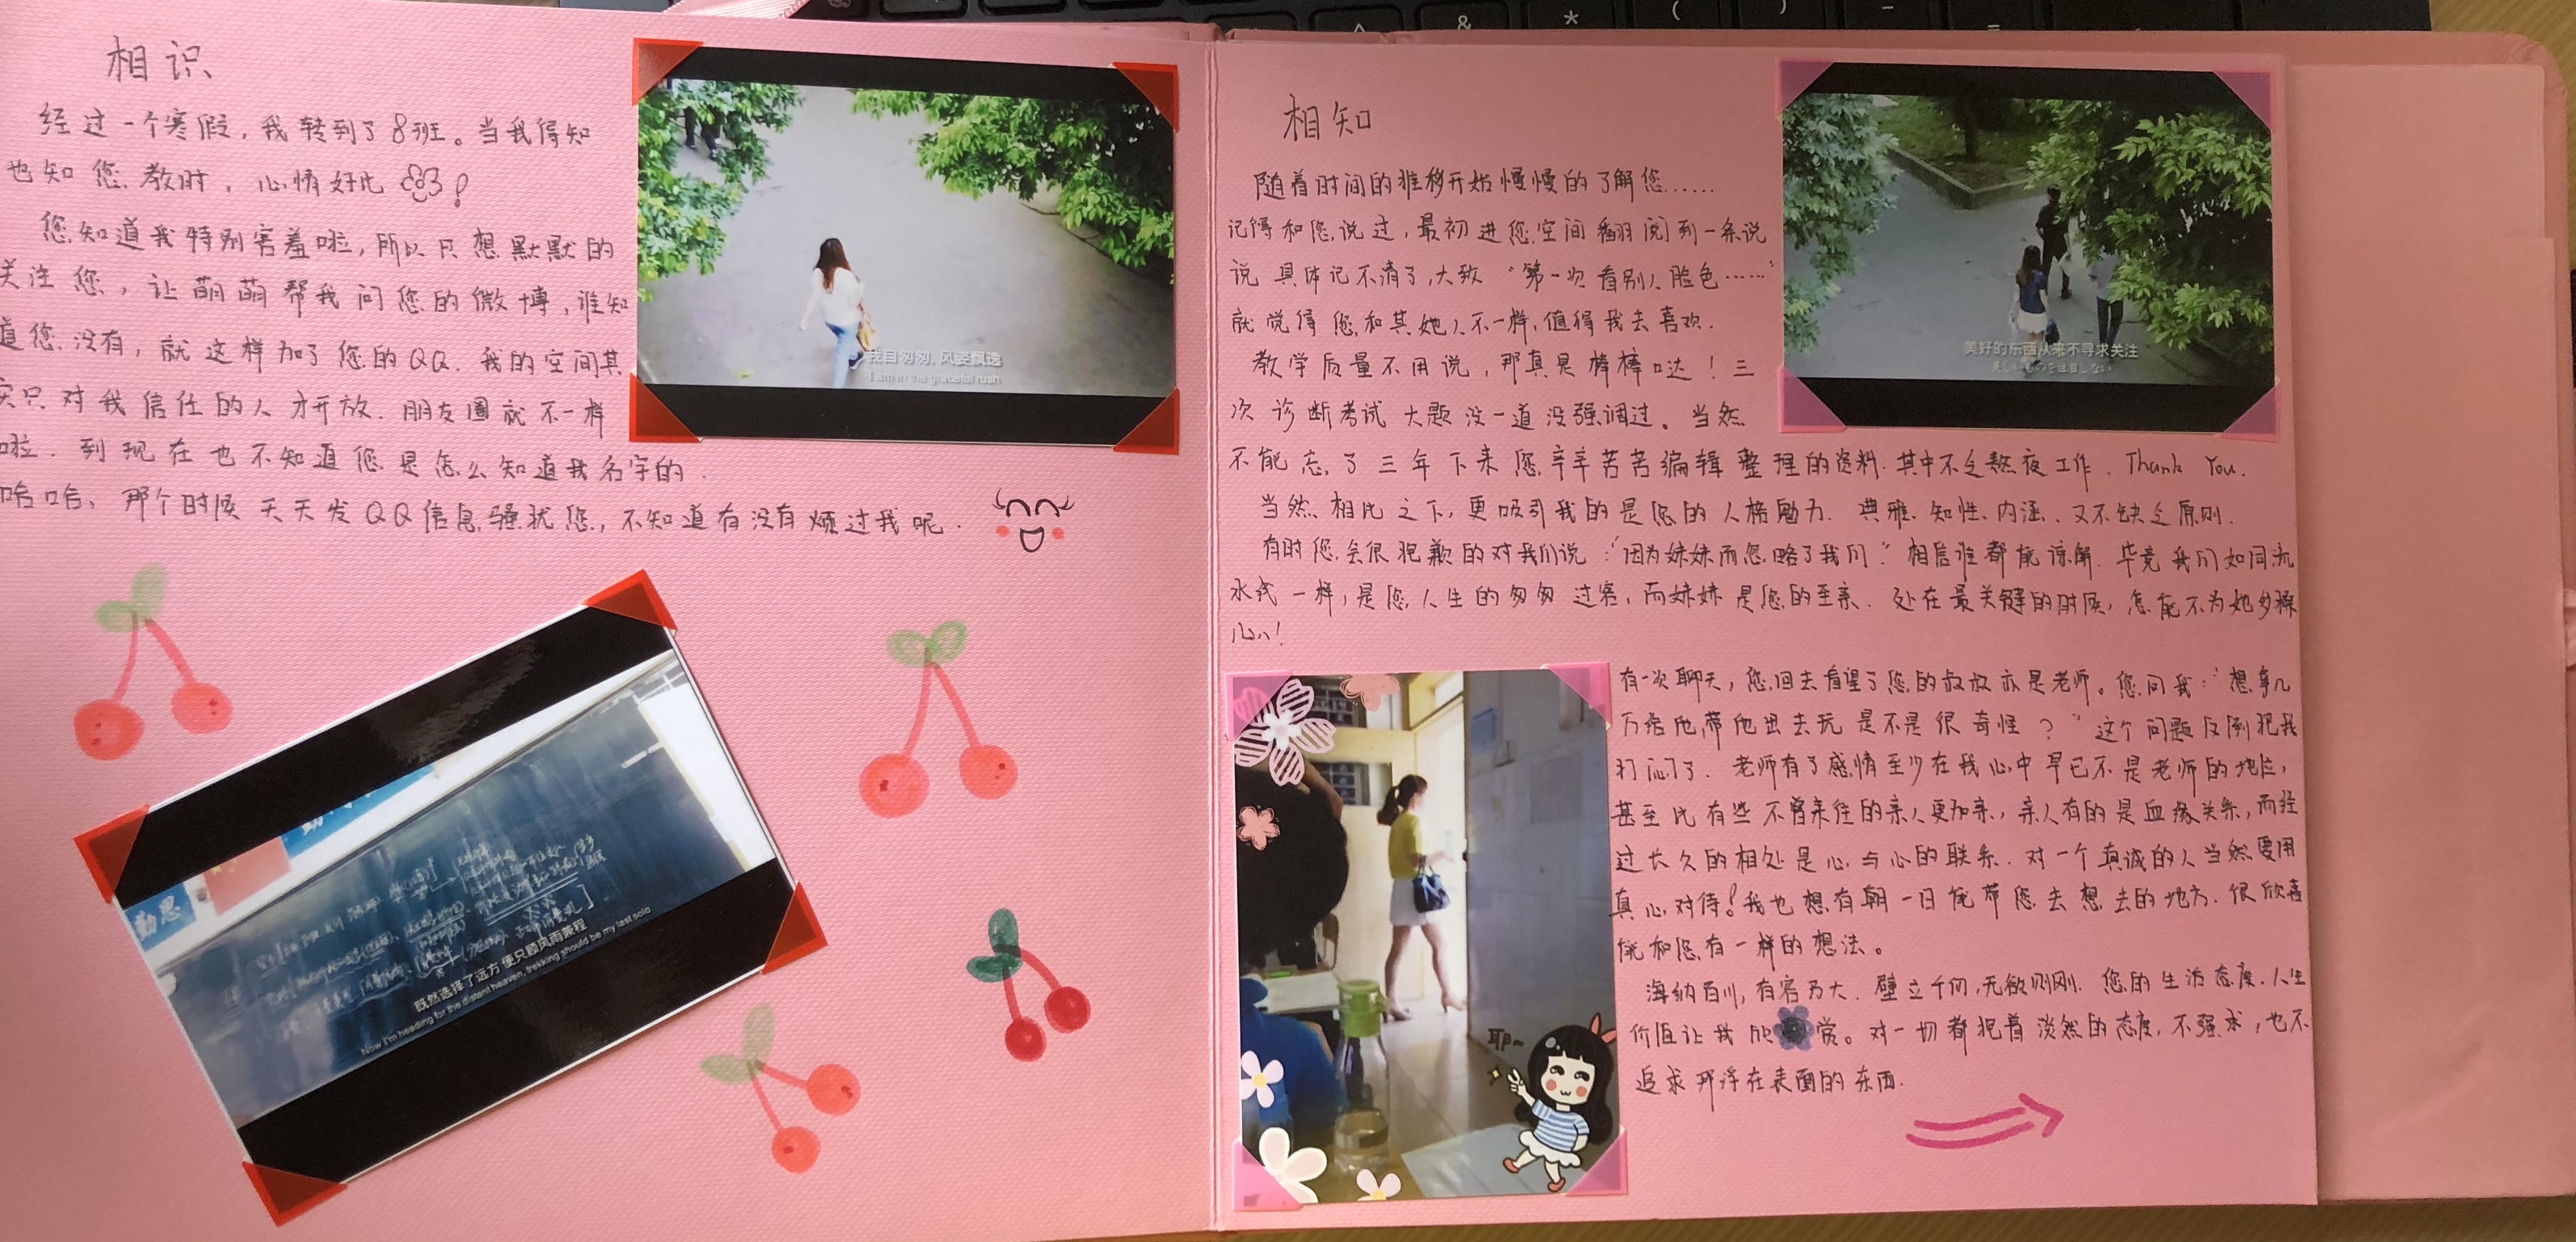 相识
经过一个寒假，我转到了8班。当我得知
也知您教时，心情好比
您知道我特别害羞啦，所以只想默默的
关注您，让萌萌帮我问您的微博，谁知
道您没有，就这样加了您的QQ．我的空间其
实只对我信任的人才开放．朋友圈就不一样
啦．到现在也不知道您是怎么知道我名字的．
哈哈，那个时候天天发QQ信息骚扰您，不知道有没有烦过我呢．
我自匆匆，风姿飘逸
I am in the graceful rush
勤思
既然选择了远方 便只顾风雨兼程
Now I'm heading for the distant heaven, trekking should be my last solo
相知
随着时间的推移开始慢慢的了解您……
记得和您说过，最初进您空间翻阅到一条说
说 具体记不清了，大致“第一次看别人脸色……”
就觉得您和其她人不一样，值得我去喜欢．
教学质量不用说，那真是棒棒哒！三
次诊断考试大题没一道没强调过。当然
不能忘了三年下来您辛辛苦苦编辑整理的资料．其中不乏熬夜工作．Thank You.
当然，相比之下，更吸引我的是您的人格魅力．典雅、知性、内涵、又不缺乏原则．
有时您会很抱歉的对我们说：“因为妹妹而忽略了我们”相信谁都能谅解．毕竟我们如同流
水式一样，是您人生的匆匆过客，而妹妹是您的至亲．处在最关键的时候，怎能不为她多操
心！
美好的东西从来不寻求关注
有一次聊天，您回去看望了您的叔叔亦是老师。您问我：“想拿几
万给他，带他出去玩是不是很奇怪？”这个问题反倒把我
打闷了．老师有了感情至少在我心中早已不是老师的地位，
甚至比有些不曾来往的亲人更加亲，亲人有的是血缘关系，而经
过长久的相处是心与心的联系．对一个真诚的人当然要用
真心对待！我也想有朝一日能带您去想去的地方．很欣喜
能和您有一样的想法。
海纳百川，有容乃大．壁立千仞，无欲则刚．您的生活态度．人生
价值让我欣赏。对一切都抱着淡然的态度，不强求，也不
追求那浮在表面的东西．
耶~